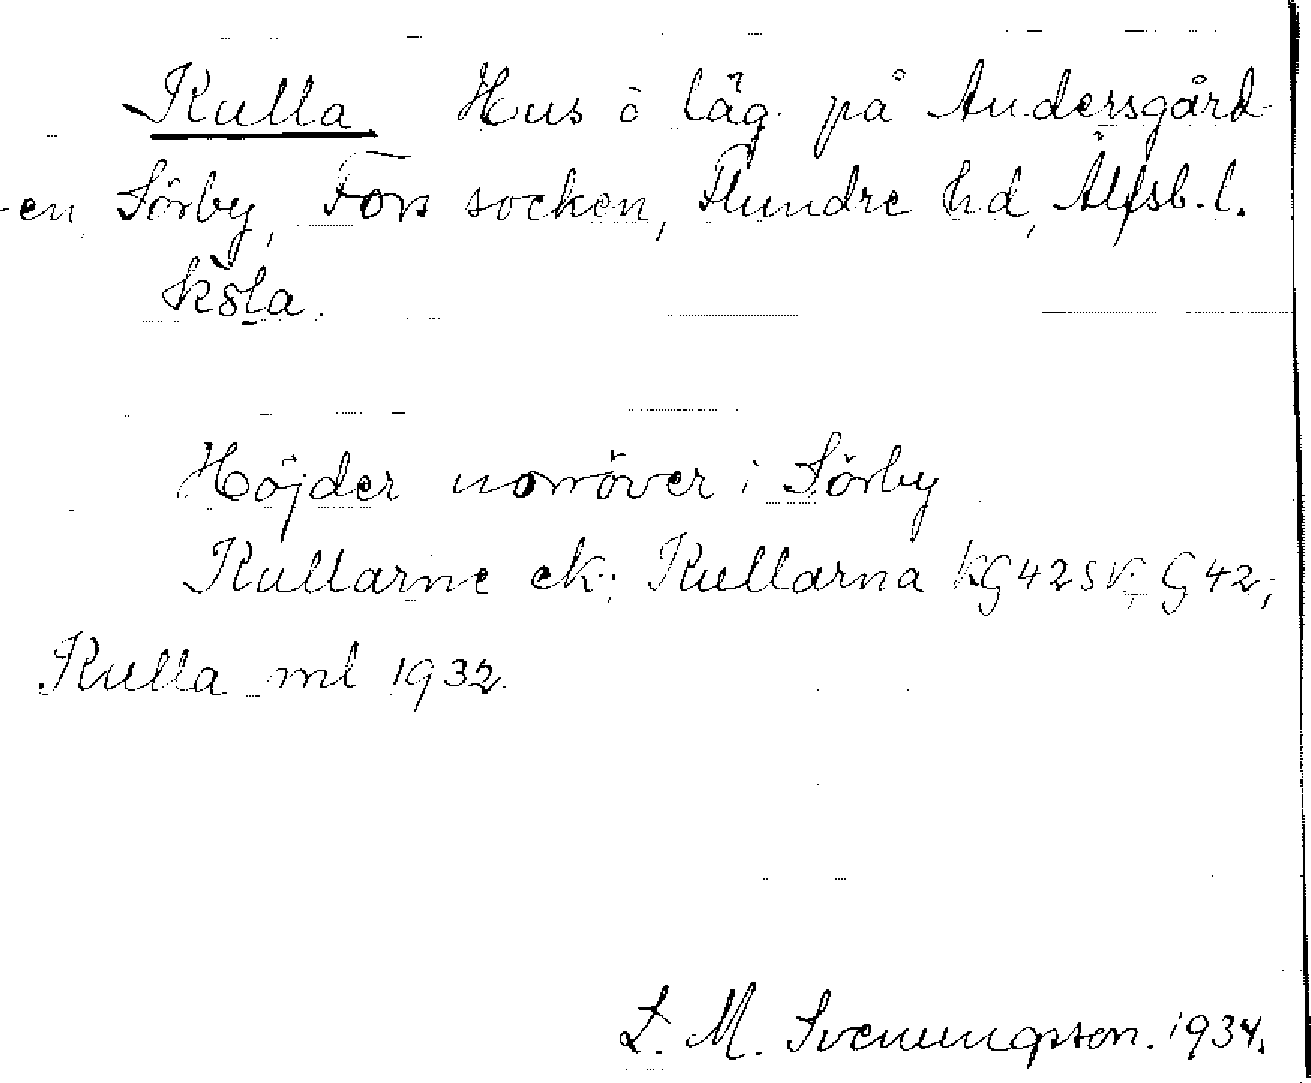 Kulla Hus o läg. på Andersgård-
-en, Sörby, Fors socken, Flundre hd, Älfsb. l.
Höjder norröver i Sörby
Kullarne ek.; Kullarna KG42SV; G42;
Kulla ml 1932.
L. M. Svenungsson. 1934.